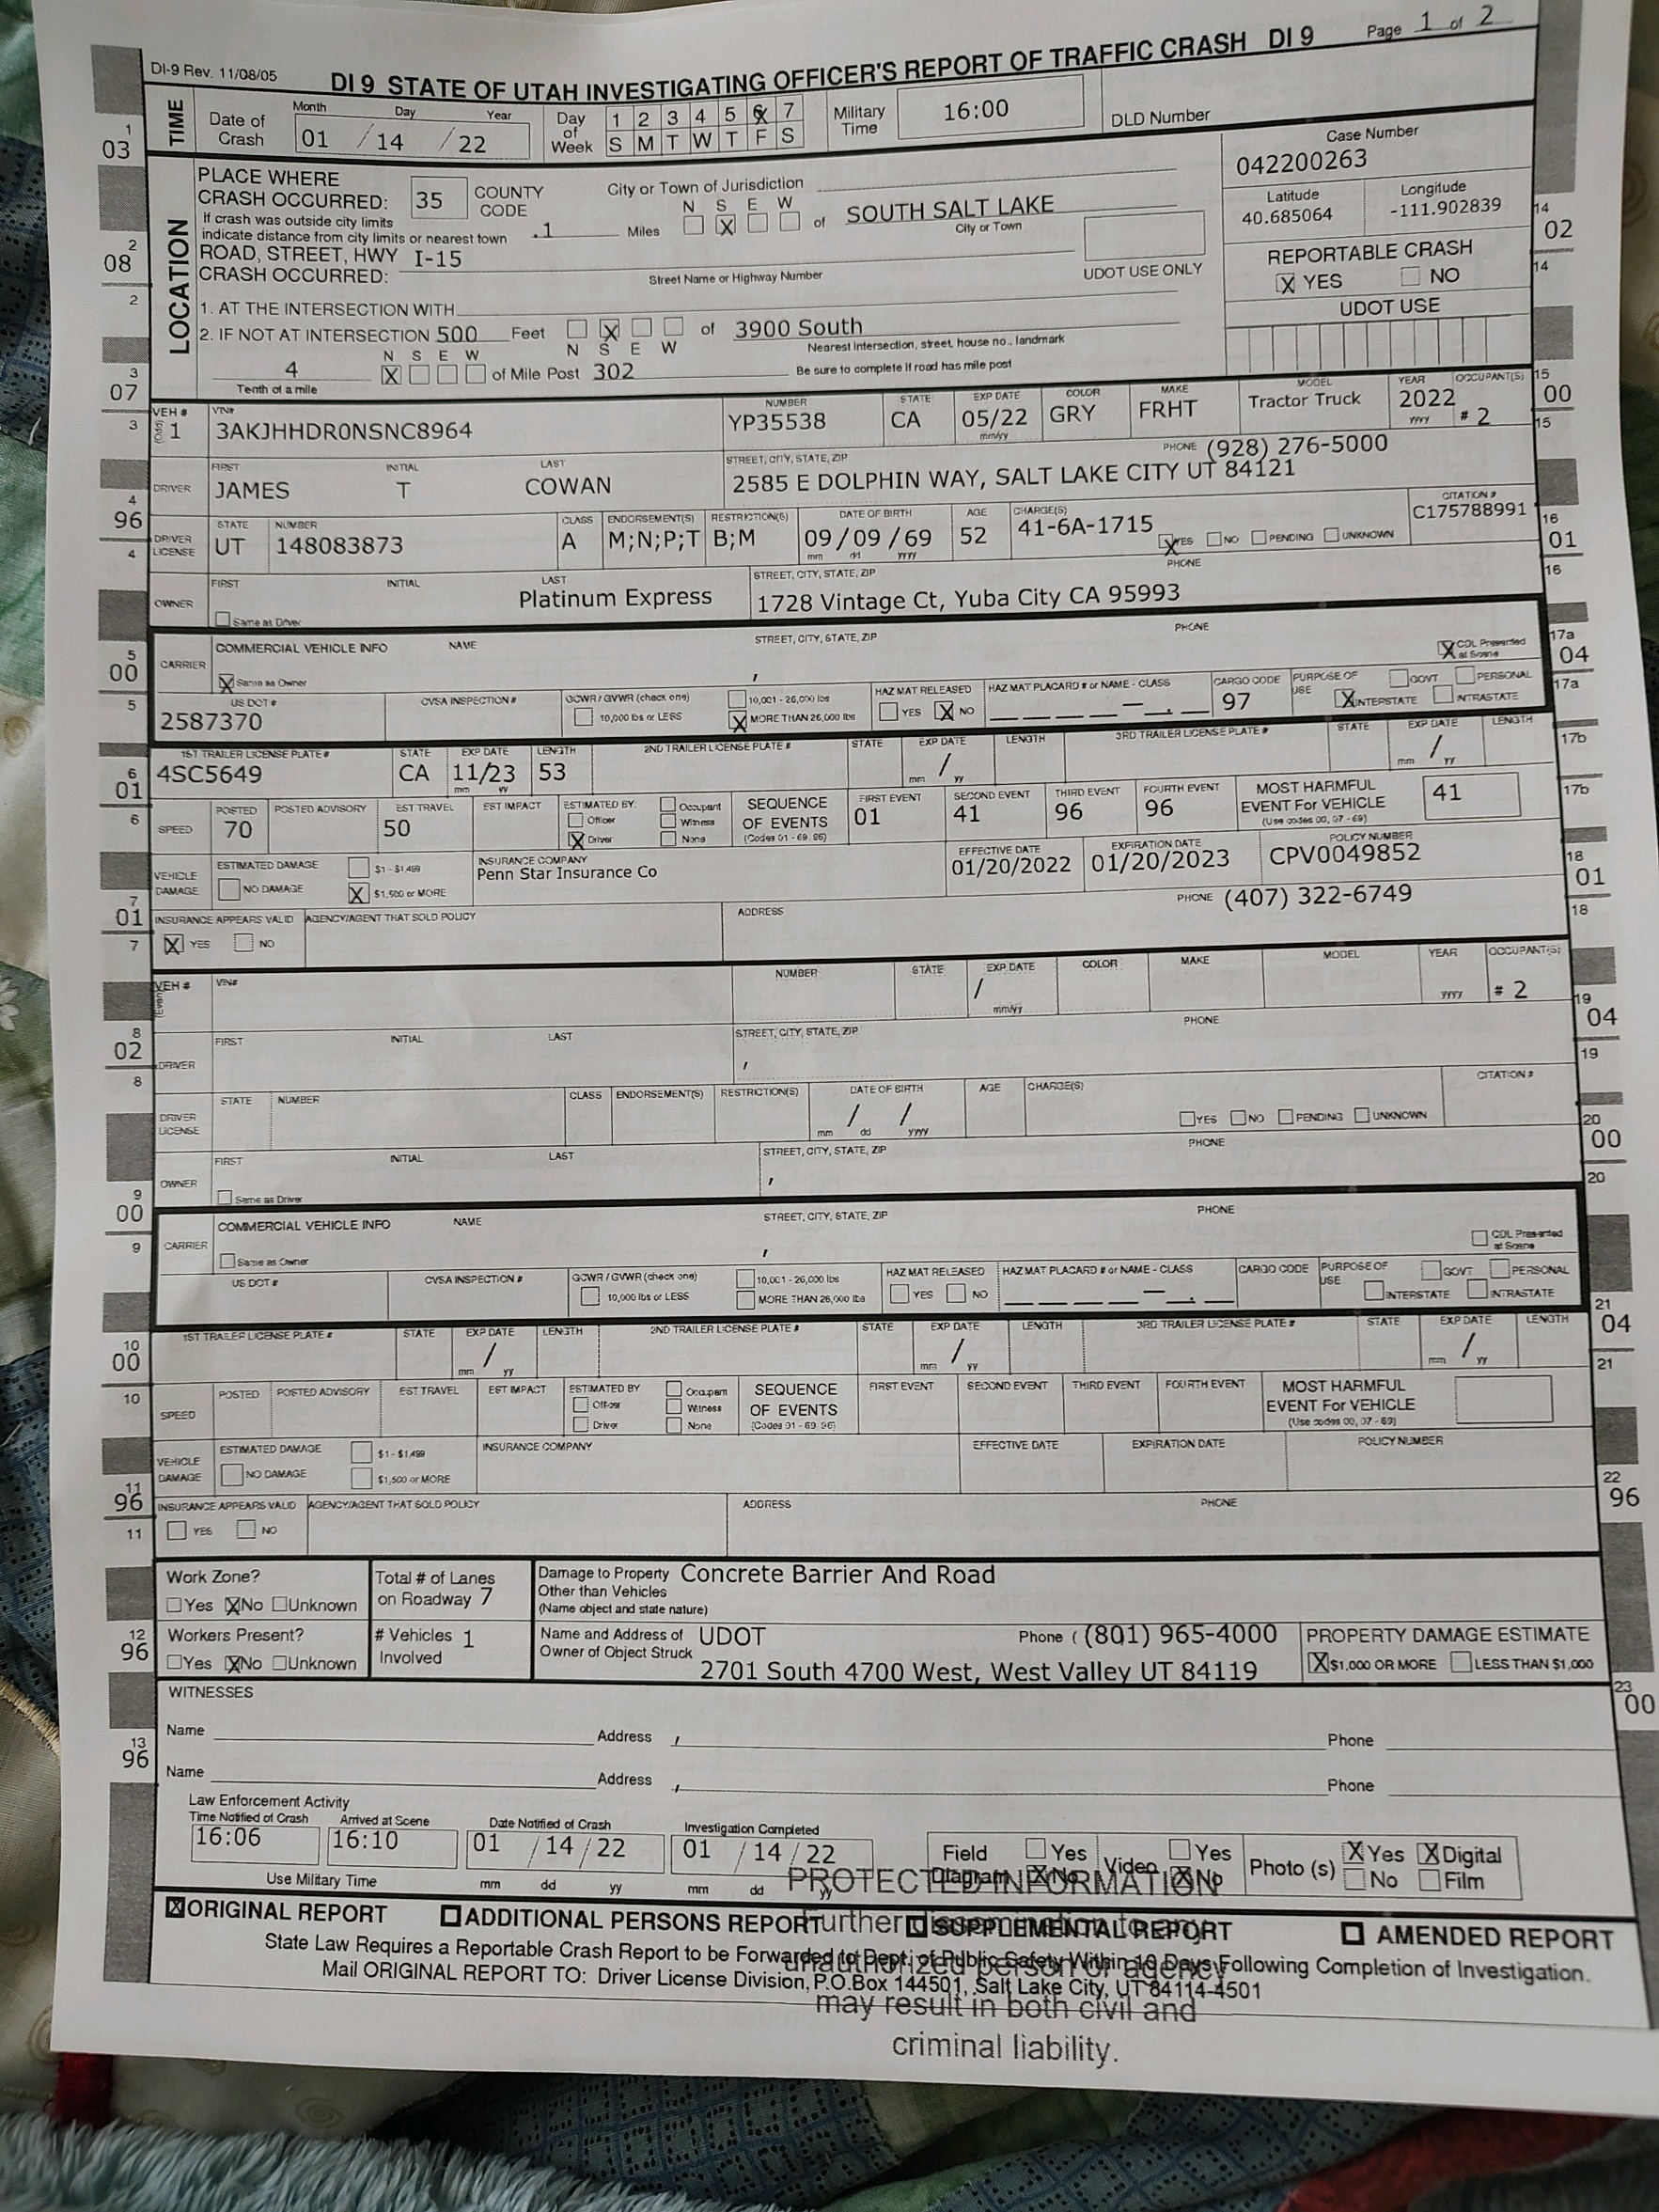 Page 1 of 2
DI-9 Rev. 11/08/05
DI 9 STATE OF UTAH INVESTIGATING OFFICER'S REPORT OF TRAFFIC CRASH DI 9
TIME
Date of Crash
Month Day Year
01 / 14 / 22
Day of Week
1 2 3 4 5 6 7
S M T W T F S
X
Military Time
16:00
DLD Number
1
03
LOCATION
PLACE WHERE CRASH OCCURRED: 35 COUNTY CODE
City or Town of Jurisdiction
Case Number
042200263
If crash was outside city limits
indicate distance from city limits or nearest town .1 Miles
N S E W
X
of SOUTH SALT LAKE
City or Town
Latitude
40.685064
Longitude
-111.902839
14
02
14
2
08
2
ROAD, STREET, HWY I-15
CRASH OCCURRED:
Street Name or Highway Number
UDOT USE ONLY
REPORTABLE CRASH
X YES NO
UDOT USE
1. AT THE INTERSECTION WITH
2. IF NOT AT INTERSECTION 500 Feet X of 3900 South
N S E W
Nearest intersection, street, house no., landmark
N S E W
4 X of Mile Post 302
Tenth of a mile
Be sure to complete if road has mile post
3
07
3
15
00
15
VEH # (Odd) 1
VIN#
3AKJHHDR0NSNC8964
NUMBER
YP35538
STATE
CA
EXP DATE
05/22
mm/yy
COLOR
GRY
MAKE
FRHT
MODEL
Tractor Truck
YEAR
2022
yyyy
OCCUPANT(S)
# 2
DRIVER
FIRST INITIAL LAST
JAMES T COWAN
STREET, CITY, STATE, ZIP
PHONE (928) 276-5000
2585 E DOLPHIN WAY, SALT LAKE CITY UT 84121
4
96
4
DRIVER LICENSE
STATE
UT
NUMBER
148083873
CLASS
A
ENDORSEMENT(S)
M;N;P;T
RESTRICTION(S)
B;M
DATE OF BIRTH
09/09/69
mm dd yyyy
AGE
52
CHARGE(S)
41-6A-1715
X YES NO PENDING UNKNOWN
CITATION #
C175788991
16
01
16
OWNER
FIRST INITIAL LAST
Platinum Express
Same as Driver
STREET, CITY, STATE, ZIP
PHONE
1728 Vintage Ct, Yuba City CA 95993
5
00
5
CARRIER
COMMERCIAL VEHICLE INFO NAME
X Same as Owner
STREET, CITY, STATE, ZIP
,
PHONE
X CDL Presented at Scene
17a
04
17a
US DOT #
2587370
CVSA INSPECTION #
GCWR / GVWR (check one)
10,000 lbs or LESS
10,001 - 26,000 lbs
X MORE THAN 26,000 lbs
HAZ MAT RELEASED
YES X NO
HAZ MAT PLACARD # or NAME - CLASS
CARGO CODE
97
PURPOSE OF USE
GOVT PERSONAL
X INTERSTATE INTRASTATE
6
01
6
1ST TRAILER LICENSE PLATE #
4SC5649
STATE
CA
EXP DATE
11/23
mm yy
LENGTH
53
2ND TRAILER LICENSE PLATE #
STATE
EXP DATE
/
mm yy
LENGTH
3RD TRAILER LICENSE PLATE #
STATE
EXP DATE
/
mm yy
LENGTH
17b
17b
SPEED
POSTED
70
POSTED ADVISORY
EST TRAVEL
50
EST IMPACT
ESTIMATED BY:
Officer
X Driver
Occupant
Witness
None
SEQUENCE OF EVENTS
(Codes 01 - 69, 96)
FIRST EVENT
01
SECOND EVENT
41
THIRD EVENT
96
FOURTH EVENT
96
MOST HARMFUL EVENT For VEHICLE
(Use codes 00, 07 - 69)
41
VEHICLE DAMAGE
ESTIMATED DAMAGE
NO DAMAGE
$1 - $1,499
X $1,500 or MORE
INSURANCE COMPANY
Penn Star Insurance Co
EFFECTIVE DATE
01/20/2022
EXPIRATION DATE
01/20/2023
POLICY NUMBER
CPV0049852
18
01
18
7
01
7
INSURANCE APPEARS VALID
X YES NO
AGENCY/AGENT THAT SOLD POLICY
ADDRESS
PHONE (407) 322-6749
VEH # (Even)
VIN#
NUMBER
STATE
EXP DATE
/
mm/yy
COLOR
MAKE
MODEL
YEAR
yyyy
OCCUPANT(S)
# 2
19
04
19
8
02
8
DRIVER
FIRST INITIAL LAST
STREET, CITY, STATE, ZIP
,
PHONE
DRIVER LICENSE
STATE
NUMBER
CLASS
ENDORSEMENT(S)
RESTRICTION(S)
DATE OF BIRTH
/ /
mm dd yyyy
AGE
CHARGE(S)
YES NO PENDING UNKNOWN
CITATION #
20
00
20
OWNER
FIRST INITIAL LAST
Same as Driver
STREET, CITY, STATE, ZIP
,
PHONE
9
00
9
CARRIER
COMMERCIAL VEHICLE INFO NAME
Same as Owner
STREET, CITY, STATE, ZIP
,
PHONE
CDL Presented at Scene
US DOT #
CVSA INSPECTION #
GCWR / GVWR (check one)
10,000 lbs or LESS
10,001 - 26,000 lbs
MORE THAN 26,000 lbs
HAZ MAT RELEASED
YES NO
HAZ MAT PLACARD # or NAME - CLASS
CARGO CODE
PURPOSE OF USE
GOVT PERSONAL
INTERSTATE INTRASTATE
21
04
21
10
00
10
1ST TRAILER LICENSE PLATE #
STATE
EXP DATE
/
mm yy
LENGTH
2ND TRAILER LICENSE PLATE #
STATE
EXP DATE
/
mm yy
LENGTH
3RD TRAILER LICENSE PLATE #
STATE
EXP DATE
/
mm yy
LENGTH
SPEED
POSTED
POSTED ADVISORY
EST TRAVEL
EST IMPACT
ESTIMATED BY
Officer
Driver
Occupant
Witness
None
SEQUENCE OF EVENTS
(Codes 01 - 69, 96)
FIRST EVENT
SECOND EVENT
THIRD EVENT
FOURTH EVENT
MOST HARMFUL EVENT For VEHICLE
(Use codes 00, 07 - 69)
VEHICLE DAMAGE
ESTIMATED DAMAGE
NO DAMAGE
$1 - $1,499
$1,500 or MORE
INSURANCE COMPANY
EFFECTIVE DATE
EXPIRATION DATE
POLICY NUMBER
22
96
11
96
11
INSURANCE APPEARS VALID
YES NO
AGENCY/AGENT THAT SOLD POLICY
ADDRESS
PHONE
Work Zone?
Yes X No Unknown
Total # of Lanes on Roadway 7
Damage to Property Other than Vehicles
(Name object and state nature)
Concrete Barrier And Road
12
96
Workers Present?
Yes X No Unknown
# Vehicles Involved 1
Name and Address of Owner of Object Struck
UDOT
Phone ( (801) 965-4000
2701 South 4700 West, West Valley UT 84119
PROPERTY DAMAGE ESTIMATE
X $1,000 OR MORE LESS THAN $1,000
23
00
WITNESSES
Name Address , Phone
13
96
Name Address , Phone
Law Enforcement Activity
Time Notified of Crash
16:06
Arrived at Scene
16:10
Use Military Time
Date Notified of Crash
01 / 14 / 22
mm dd yy
Investigation Completed
01 / 14 / 22
mm dd yy
Field Diagram Yes X No
Video Yes X No
Photo (s) X Yes No X Digital Film
PROTECTED INFORMATION
Further dissemination to any
unauthorized person or agency
may result in both civil and
criminal liability.
X ORIGINAL REPORT ADDITIONAL PERSONS REPORT SUPPLEMENTAL REPORT AMENDED REPORT
State Law Requires a Reportable Crash Report to be Forwarded to Dept. of Public Safety Within 10 Days Following Completion of Investigation.
Mail ORIGINAL REPORT TO: Driver License Division, P.O.Box 144501, Salt Lake City, UT 84114-4501